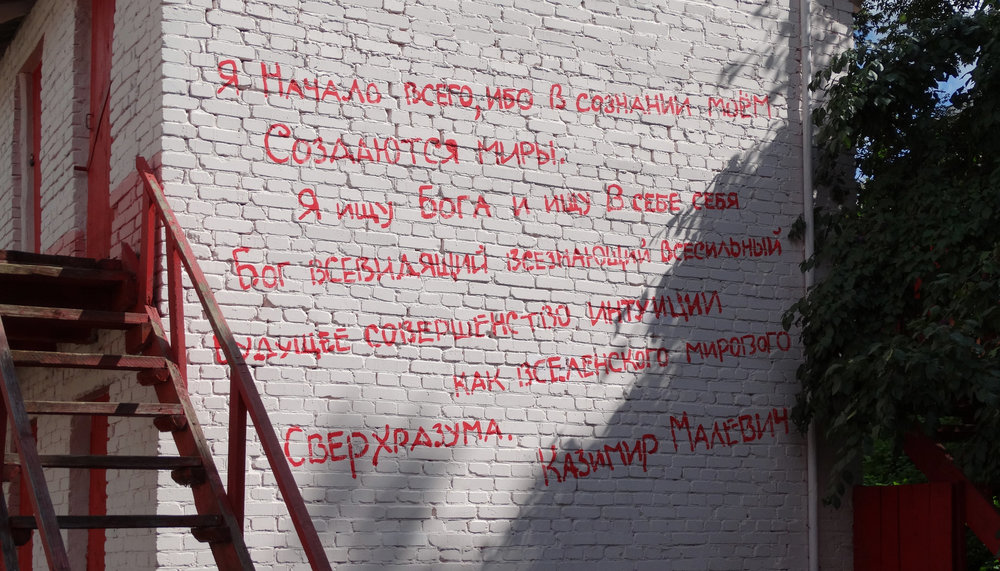 Я Начало всего, ибо в сознании моём
Создаются миры.
Я ищу Бога и ищу В себе себя
Бог всевидящий всезнающий всесильный
Будущее совершенство интуиции
как вселенского мирового
Сверхразума.
Казимир Малевич